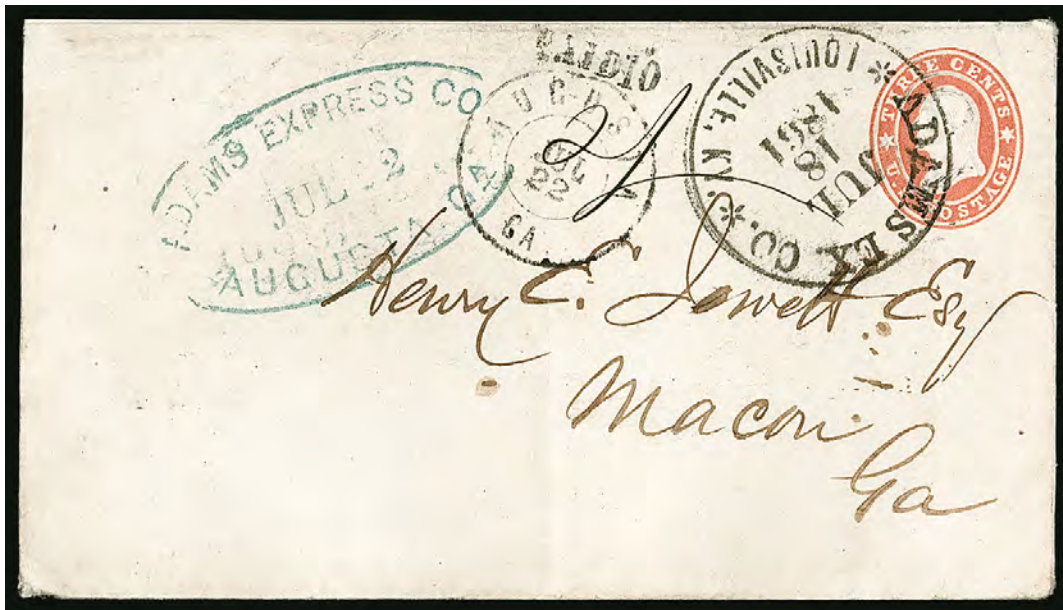 ADAMS EXPRESS CO
JUL 22
AUGUSTA, GA.
AUGUSTA
JUL
22
GA.
PAID 10
ADAMS EX. CO. * LOUISVILLE, KY. *
JUL
18
1861
THREE CENTS
U.S. POSTAGE
Henry C. Jewett Esq
Macon
Ga